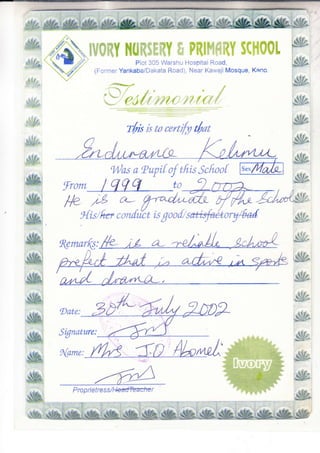 IVORY NURSERY & PRIMARY SCHOOL
Plot 305 Warshu Hospital Road,
(Former Yankaba/Dakata Road), Near Kawaji Mosque, Kano.
Testimonial
This is to certify that
Endurance Kelimu
Was a Pupil of this School Sex Male
From 1999 to 2002
He is a graduate of the School
His/her conduct is good/satisfactory/bad
Remarks: He is a reliable school
prefect that is active in sports
and drama.
Date: 30th July 2002
Signature:
Name: Mrs J.O Abomeli
Proprietress/HeadTeacher
Ivory